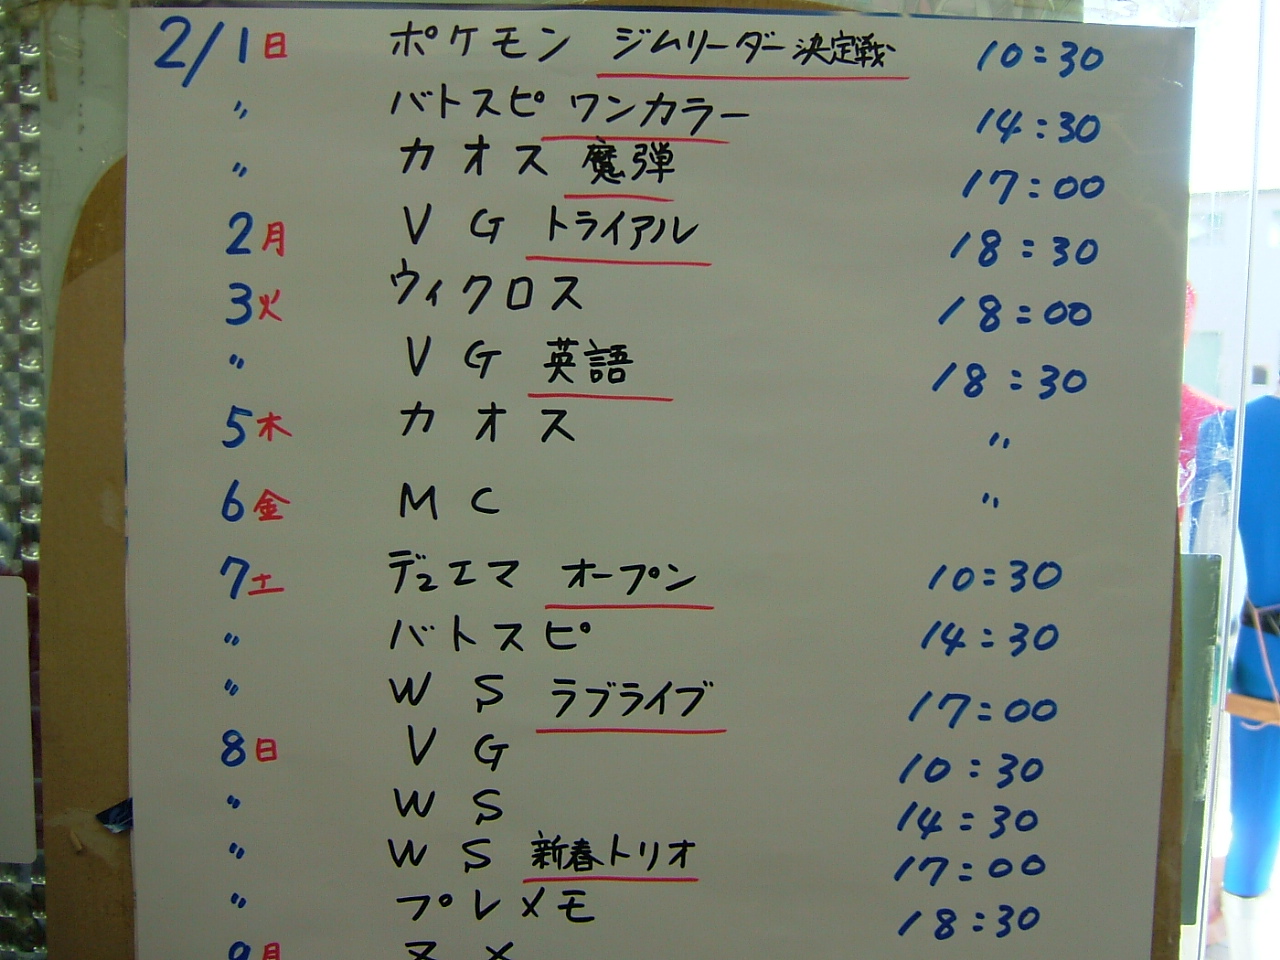 2/1日 ポケモン ジムリーダー決定戦 10:30
〃 バトスピ ワンカラー 14:30
〃 カオス 魔弾 17:00
2月 VG トライアル 18:30
3火 ウィクロス 18:00
〃 VG 英語 18:30
5木 カオス 〃
6金 MC 〃
7土 デュエマ オープン 10:30
〃 バトスピ 14:30
〃 WS ラブライブ 17:00
8日 VG 10:30
〃 WS 14:30
〃 WS 新春トリオ 17:00
〃 プレメモ 18:30
9月